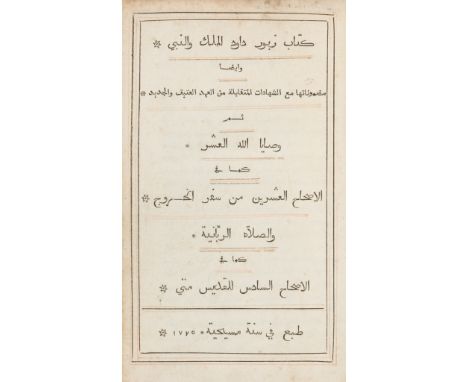 كتاب زبور داود الملك والنبي *
وايضا
مضموناتها مع الشهادات المتقابلة من العهد العتيق والجديد *
ثم
وصايا الله العشر *
كما في
الاصحاح العشرين من سفر الخروج *
والصلاة الربانية *
كما في
الاصحاح السادس للقديس متي *
طبع في سنة مسيحية * ١٧٢٥ *